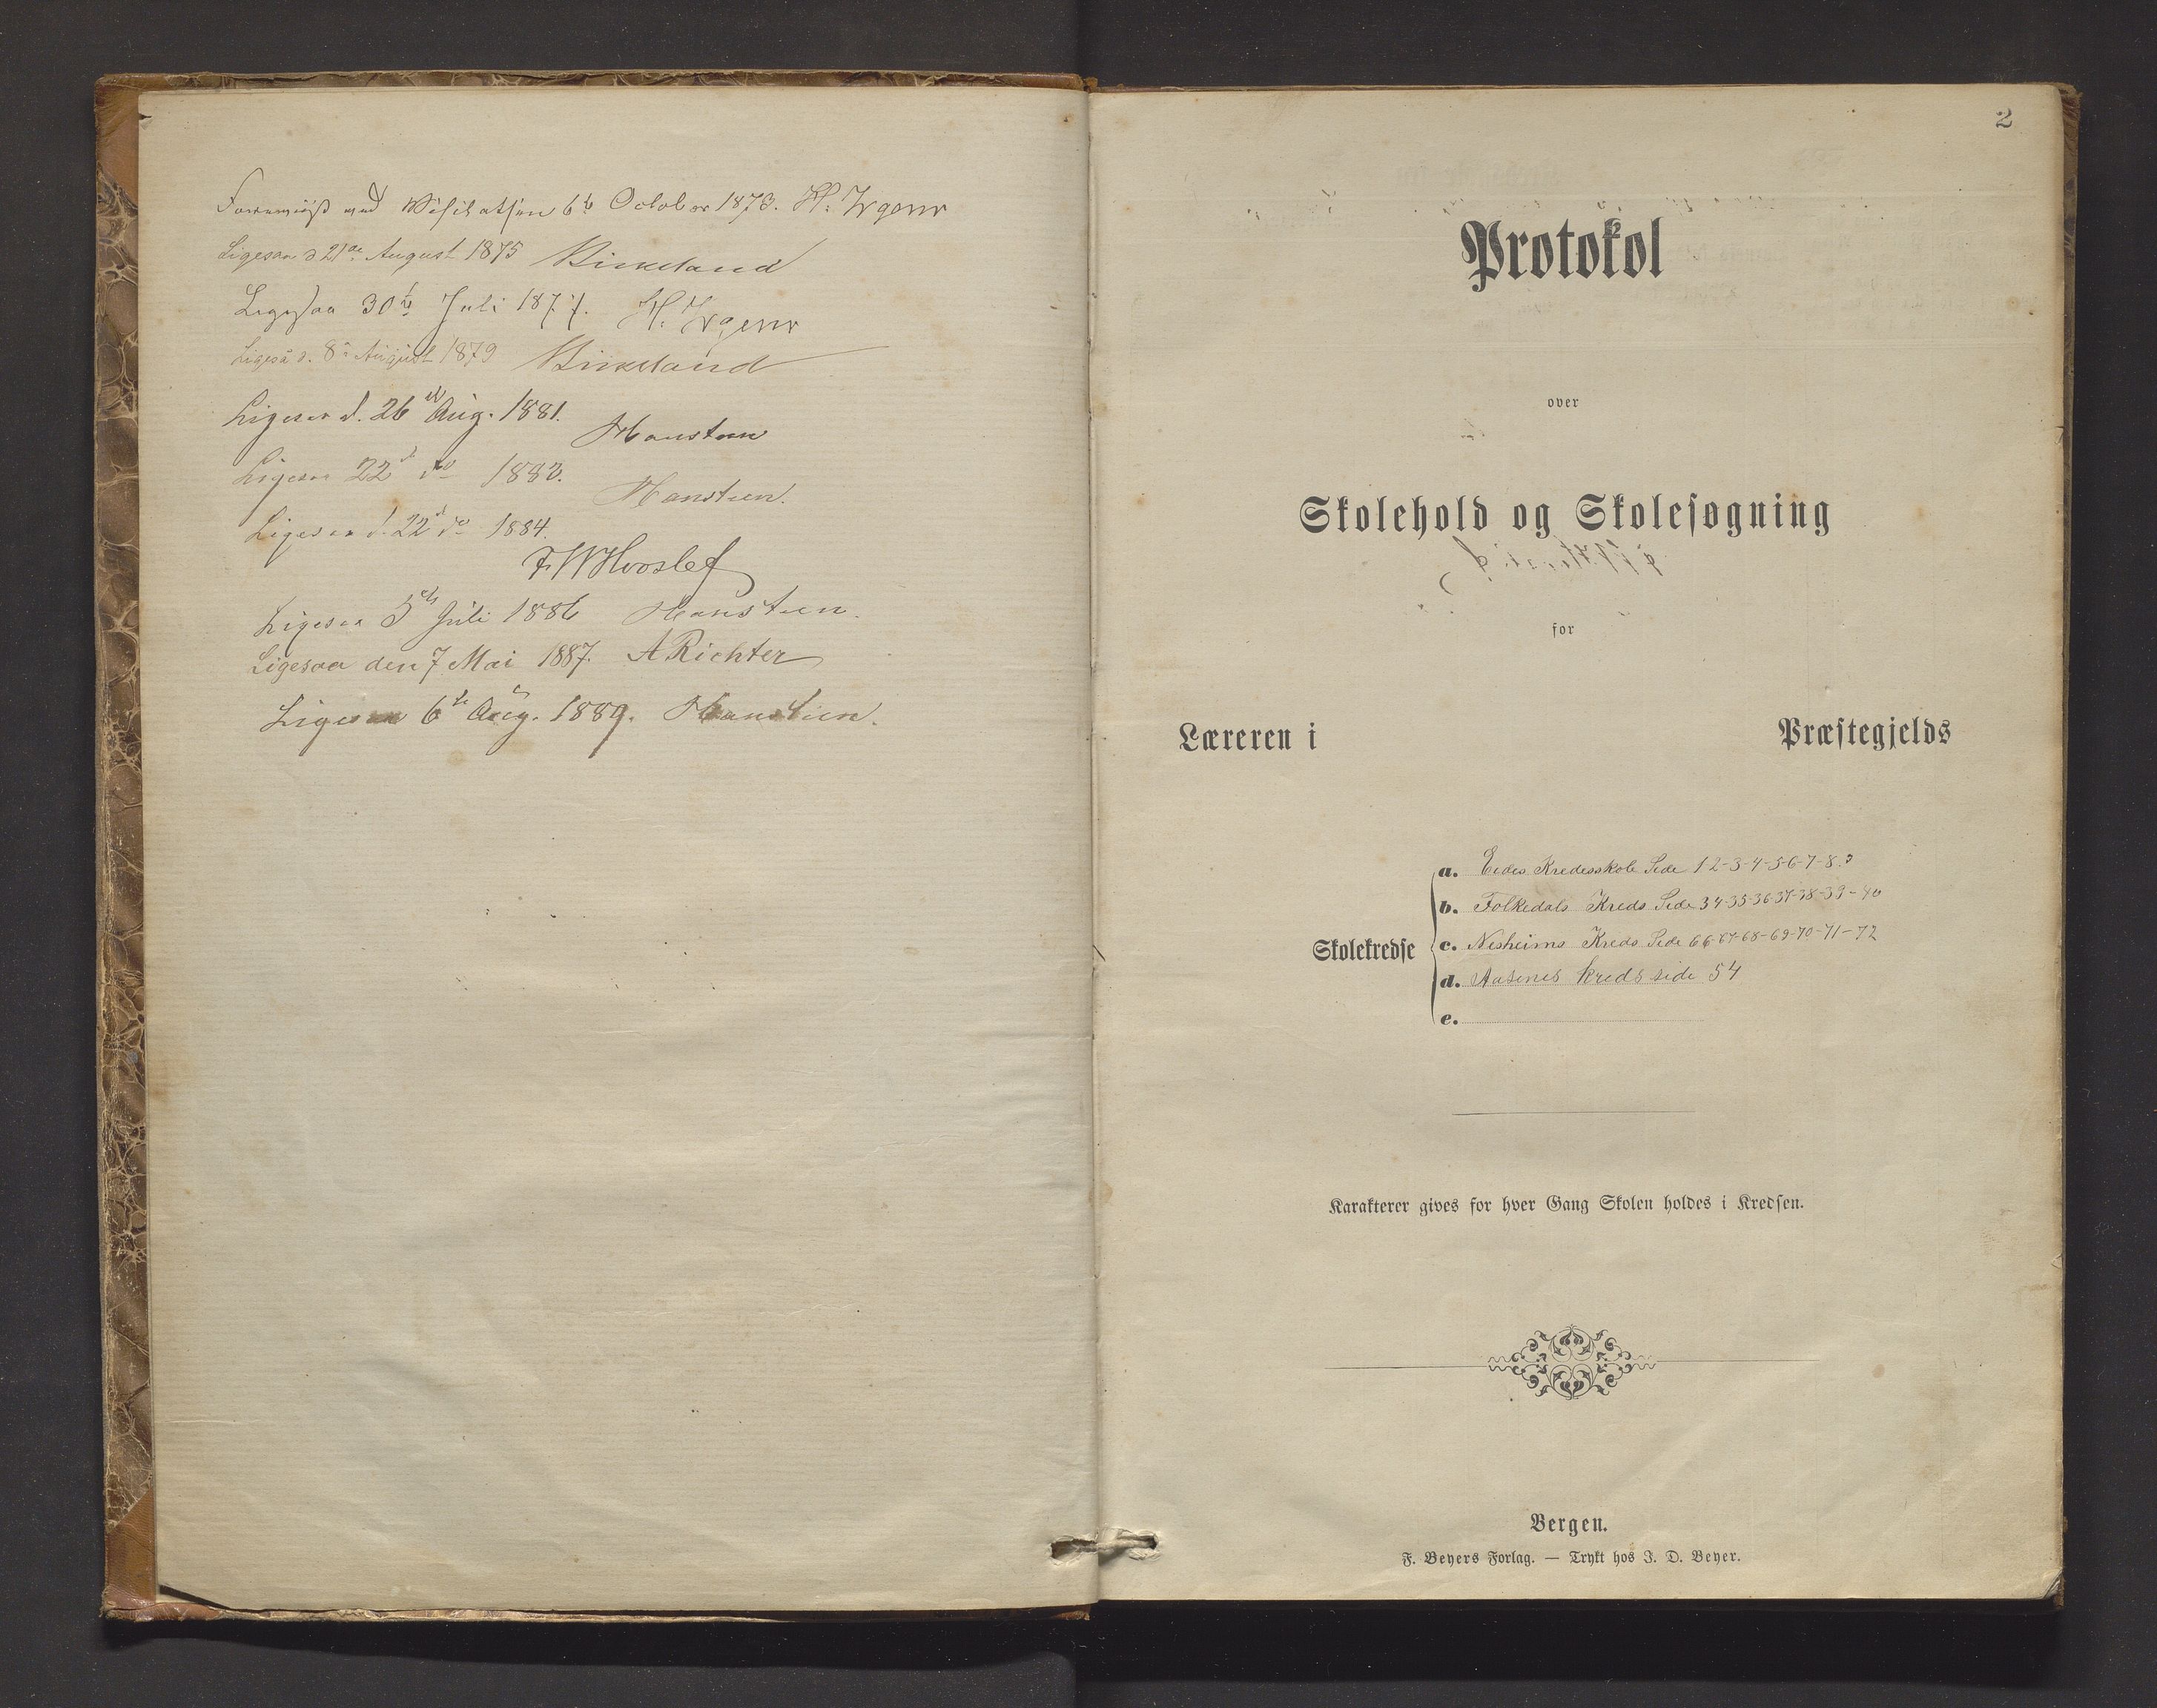 Foreviist ved Visitatsen 6te October 1873. H. Irgens
Ligesaa d 21de August 1875 Birkeland
Ligesaa 30te Juli 1877. H. Irgens
Ligesaa d. 8de August 1879 Birkeland
Ligesaa d. 26de Aug. 1881.
Hansteen
Ligesaa 22d do 1882.
Hansteen.
Ligesaa d. 22d do 1884.
F W Hvoslef
Ligesaa 5te Juli 1886 Hansteen.
Ligesaa den 7 Mai 1887. A Richter
Ligesaa 6te Aug. 1889. Hansteen.
2
Protokol
over
Skolehold og Skolesøgning
for
Læreren i Præstegjelds
Skolekredse
a. Eides Kredsskole Side 1 2-3-4-5-6-7-8.
b. Folkedals Kreds Side 34-35-36-37-38-39-40
c. Nesheims Kreds Side 66-67-68-69-70-71-72
d. Aasenes Kreds side 54
e.
Karakterer gives for hver Gang Skolen holdes i Kredsen.
Bergen.
F. Beyers Forlag. — Trykt hos J. D. Beyer.